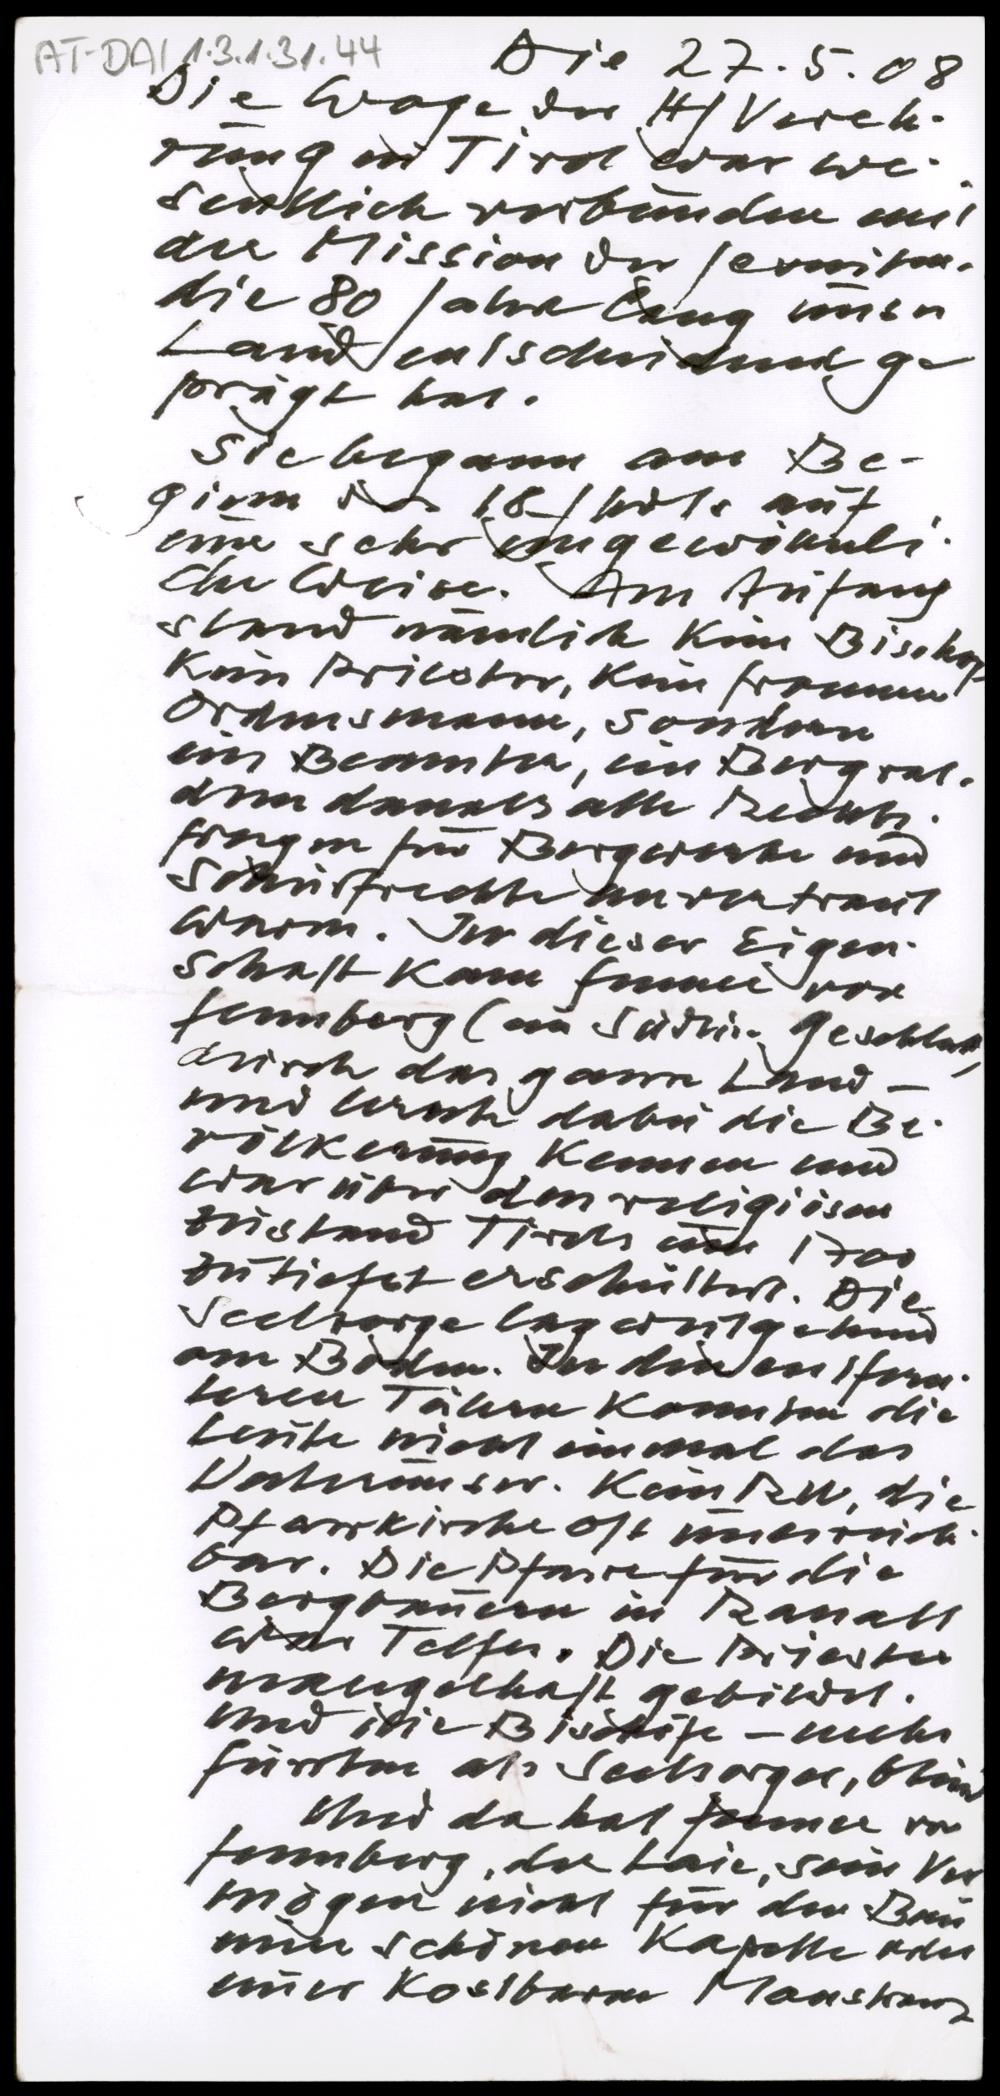 AT-DAI 1.3.1.31.44
Die 27.5.08
Die Woge der HJ Vereh-
rung in Tirol war we-
sentlich verbunden mit
der Mission der Jesuiten,
die 80 Jahre lang unser
Land entscheidend ge
prägt hat.
Sie begann am Be-
ginn des 18. Jhdts auf
eine sehr ungewöhnli-
che Weise. Am Anfang
stand nämlich kein Bischof,
kein Priester, kein frommer
Ordensmann, sondern
ein Beamter, ein Bergrat,
dem damals alle Rechts-
fragen für Bergwerke und
Schürfrechte anvertraut
waren. In dieser Eigen-
schaft kam Fenner von
Fennberg (ein Südtir. Geschlecht)
durch das ganze Land –
und lernte dabei die Be-
völkerung kennen und
war über den religiösen
Zustand Tirols um 1700
zutiefst erschüttert. Die
Seelsorge lag weitgehend
am Boden. In den entfern-
teren Tälern konnten die
Leute nicht einmal das
Vaterunser. Kein RU, die
Pfarrkirche oft unerreich-
bar. Die Pfarre für die
Bergbauern in Ranalt
war Telfes. Die Priester
mangelhaft gebildet.
Und die Bischöfe – mehr
Fürsten als Seelsorger, blind
Und da hat Fenner von
Fennberg, der Laie, sein Ver
mögen nicht für den Bau
einer schönen Kapelle oder
einer kostbaren Monstranz